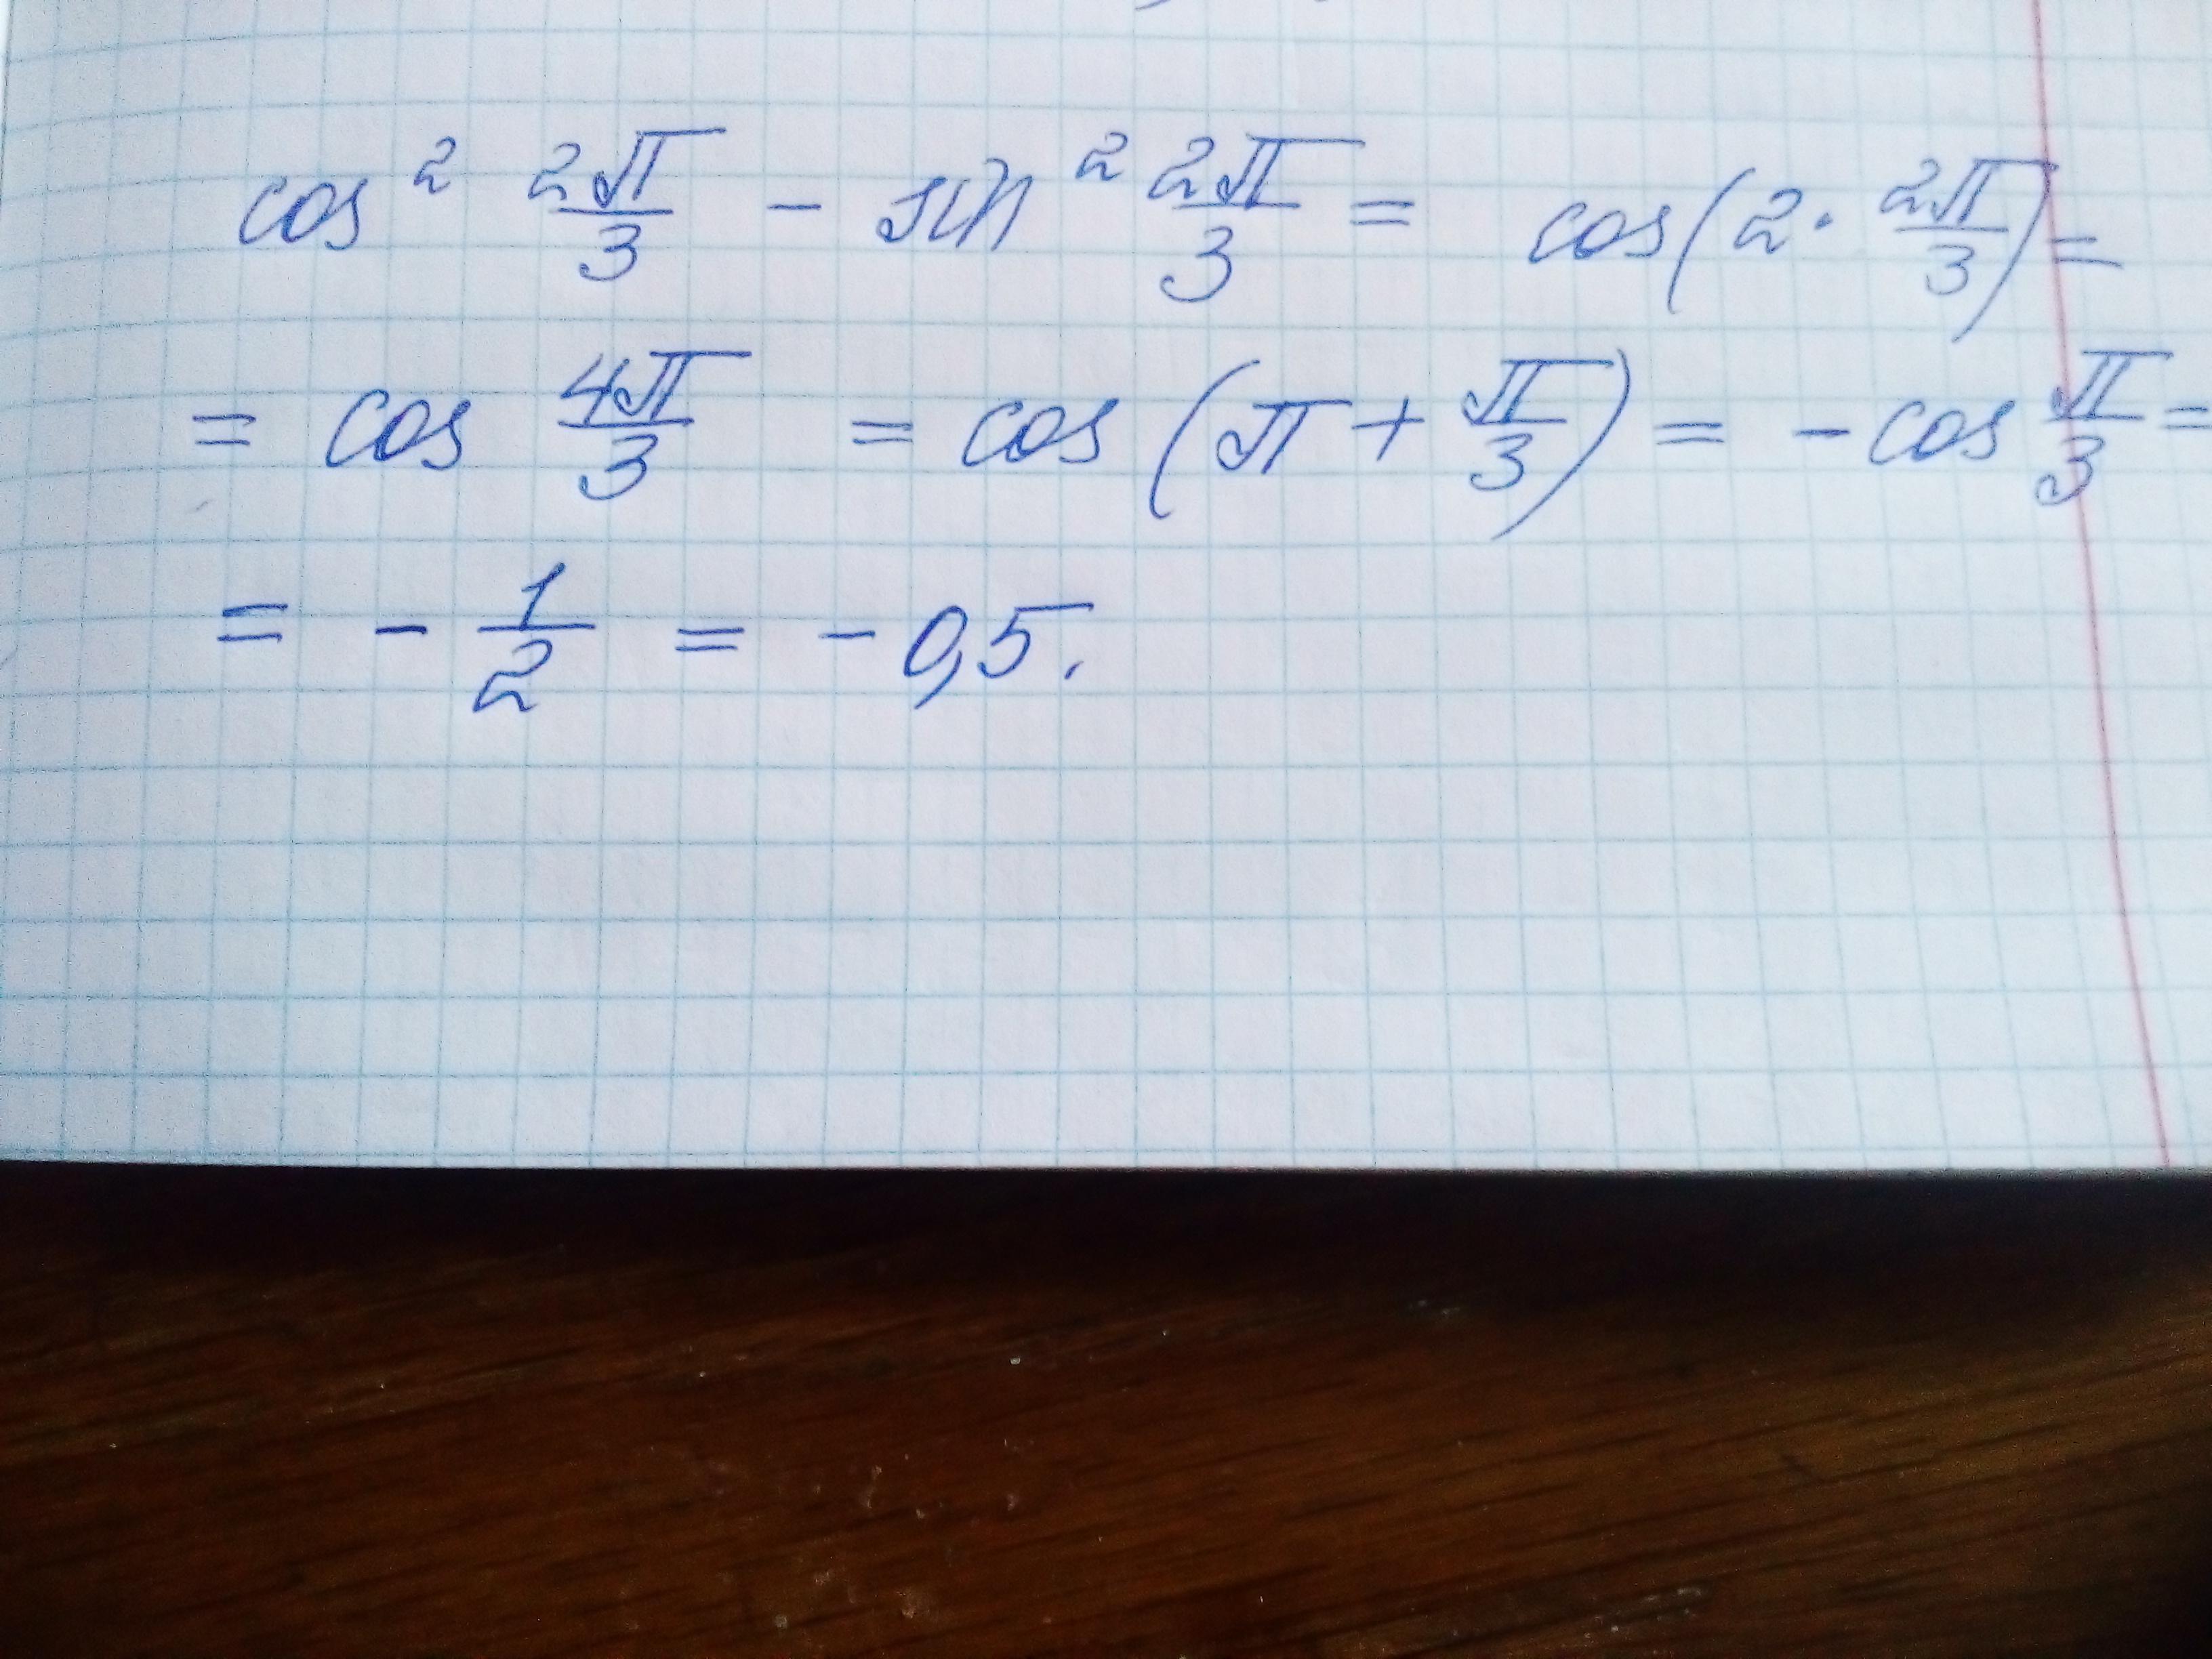 cos² 2π/3 - sin² 2π/3 = cos(2·2π/3) =
= cos 4π/3 = cos(π + π/3) = - cos π/3 =
= - 1/2 = - 0,5.